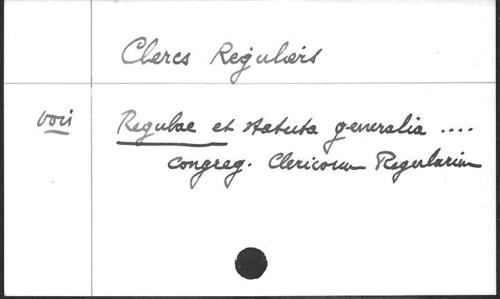 Clercs Réguliers
voir
Regulae et statuta generalia ....
congreg. Clericorum Regularium